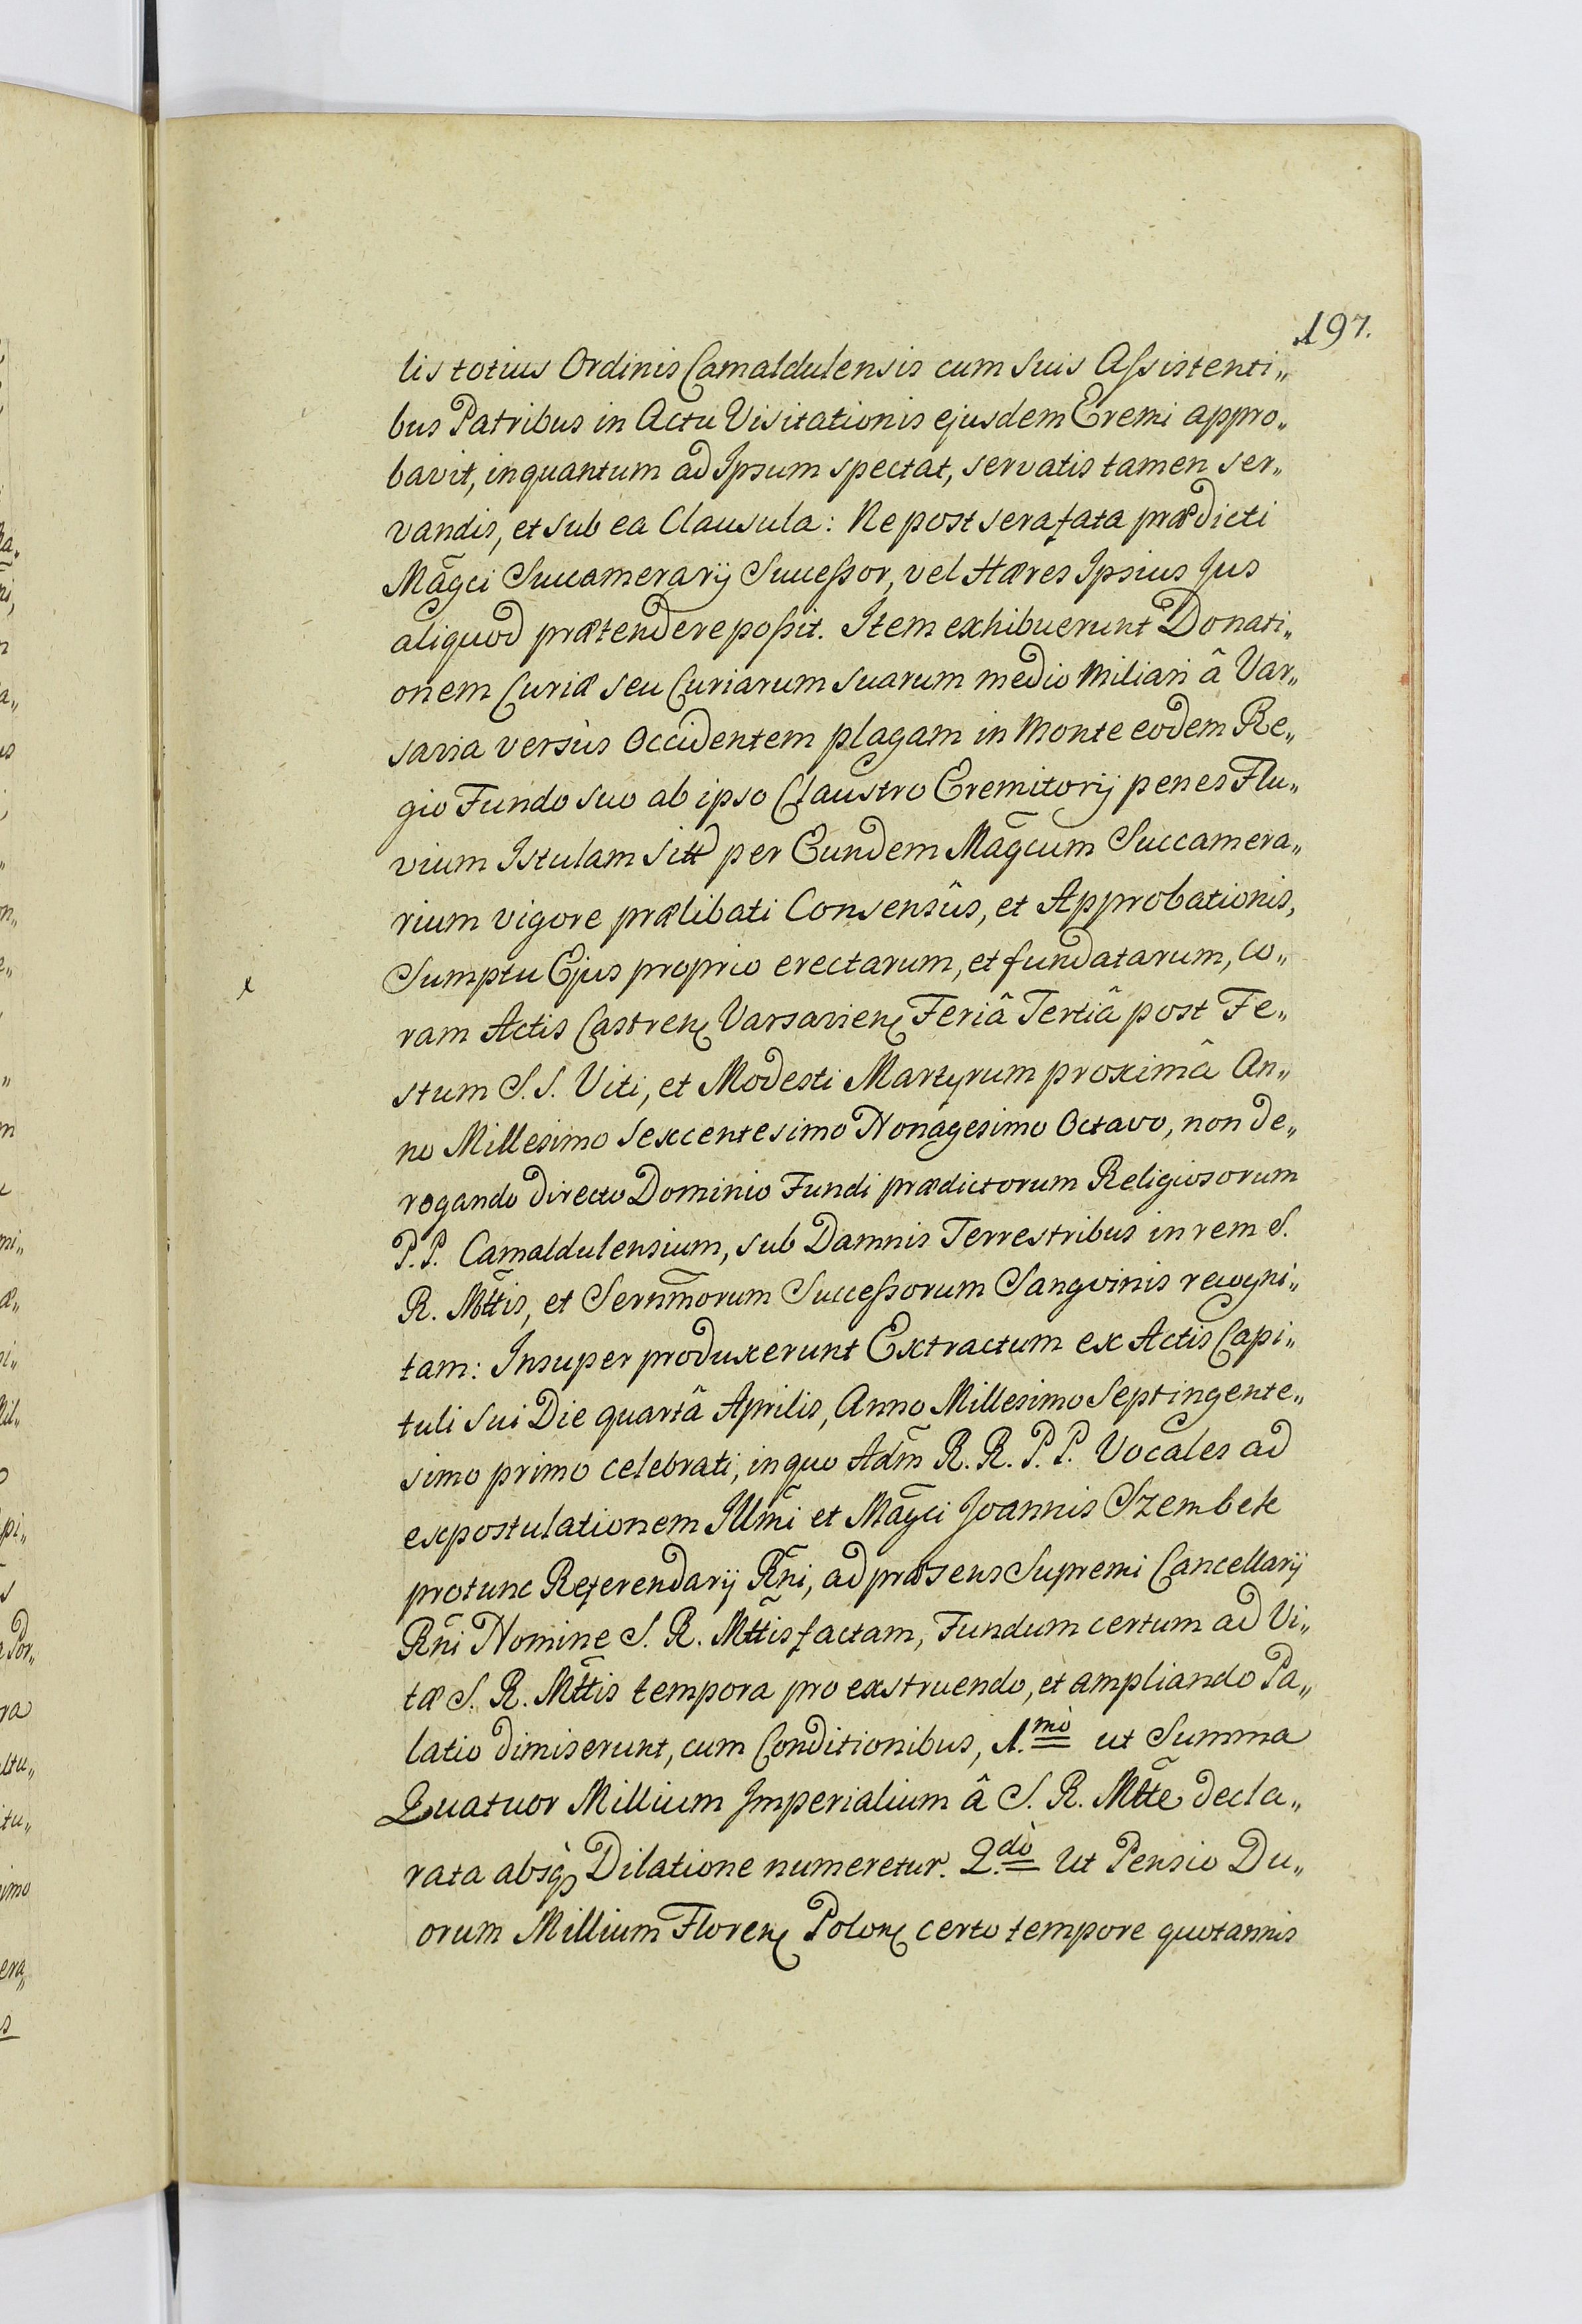 197.
lis totius Ordinis Camaldulensis cum suis Assistenti„
bus Patribus in Actu Visitationis ejusdem Eremi appro„
bavit, inquantum ad Ipsum spectat, servatis tamen ser„
vandis, et sub ea Clausula: Ne post sera fata prædicti
Magci Succamerarij Successor, vel Hæres Ipsius Jus
aliquod prætendere possit. Item exhibuerunt Donati„
onem Curiæ seu Curiarum suarum medio Miliari â Var„
savia versùs Occidentem plagam in Monte eodem Re„
gio Fundo suo ab ipso Claustro Eremitorij penes Flu„
vium Istulam per Eundem Magcum Succamera„
rium vigore prælibati Consensûs, et Approbationis,
Sumptu Ejus proprio erectarum, et fundatarum, co„
ram Actis Castren Varsavien Feriâ Tertiâ post Fe„
stum S. S. Viti, et Modesti Martyrum proximâ An„
no Millesimo sexcentesimo Nonagesimo Octavo, non de„
rogando directo Dominio Fundi prædictorum Religiosorum
P. P. Camaldulensium, sub Damnis Terrestribus in rem S.
R. Mttis, et Sernmorum Successorum Sangvinis recogni„
tam: Insuper produxerunt Extractum ex Actis Capi„
tuli sui Die quartâ Aprilis, Anno Millesimo Septingente„
simo primo celebrati, in quo Adm R. R. P. P. Vocales ad
expostulationem Illmi et Magci Joannis Szembek
protunc Referendarij Rni, ad præsens Supremi Cancellarij
Rni Nomine S. R. Mttis factam, Fundum certum ad Vi„
tæ S. R. Mttis tempora pro exstruendo, et ampliando Pa„
latio dimiserunt, cum Conditionibus, 1.mò ut Summa
Quatuor Millium Imperialium â S. R. Mtte decla„
rata absq Dilatione numeretur. 2.dò Ut Pensio Du„
orum Millium Floren Polon certo tempore quotannis